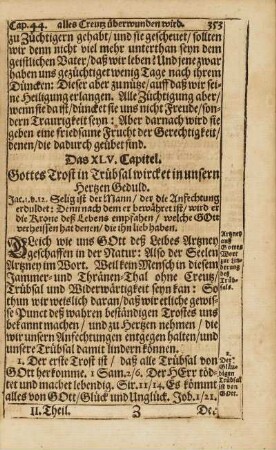 Cap. 44. alles Creutz überwunden wird. 353
zu Züchtigern gehabt/ und sie gescheuet/ sollten
wir denn nicht viel mehr unterthan seyn dem
geistlichen Vater/ daß wir leben? Und jene zwar
haben uns gezüchtiget wenig Tage nach ihrem
Düncken: Dieser aber zu nütze/ auff daß wir sei-
ne Heiligung erlangen. Alle Züchtigung aber/
wenn sie da ist/ düncket sie uns nicht Freude/ son-
dern Traurigkeit seyn: Aber darnach wird sie
geben eine friedsame Frucht der Gerechtigkeit/
denen/ die dadurch geübet sind.
Das XLV. Capitel.
Gottes Trost in Trübsal wircket in unsern
Hertzen Geduld.
Jac. 1. v. 12. Selig ist der Mann/ der die Anfechtung
erduldet: Denn nach dem er bewähret ist/ wird er
die Krone deß Lebens empfahen/ welche GOtt
verheissen hat denen/ die ihn lieb haben.
GLeich wie uns GOtt deß Leibes Artzney
geschaffen in der Natur: Also der Seelen
Artzney im Wort. Weil kein Mensch in diesem
Jammer- und Thränen-Thal ohne Creutz/
Trübsal und Widerwärtigkeit seyn kan: So
thun wir weislich daran/ daß wir etliche gewis-
se Punct deß wahren beständigen Trostes uns
bekannt machen/ und zu Hertzen nehmen/ die
wir unsern Anfechtungen entgegen halten/ und
unsere Trübsal damit lindern können.
1. Der erste Trost ist/ daß alle Trübsal von
GOtt herkomme. 1 Sam. 2/6. Der HErr töd-
tet und machet lebendig. Sir. 11/14. Es kömt
alles von GOtt/ Glück und Unglück. Job. 1/21.
II. Theil. Z De.
Artzney
aus
Gottes
Wort
zur Lin-
derung
der
Trüb-
sals.
1.
Der Gläu-
bigen
Trübsal
ist von
GOtt.